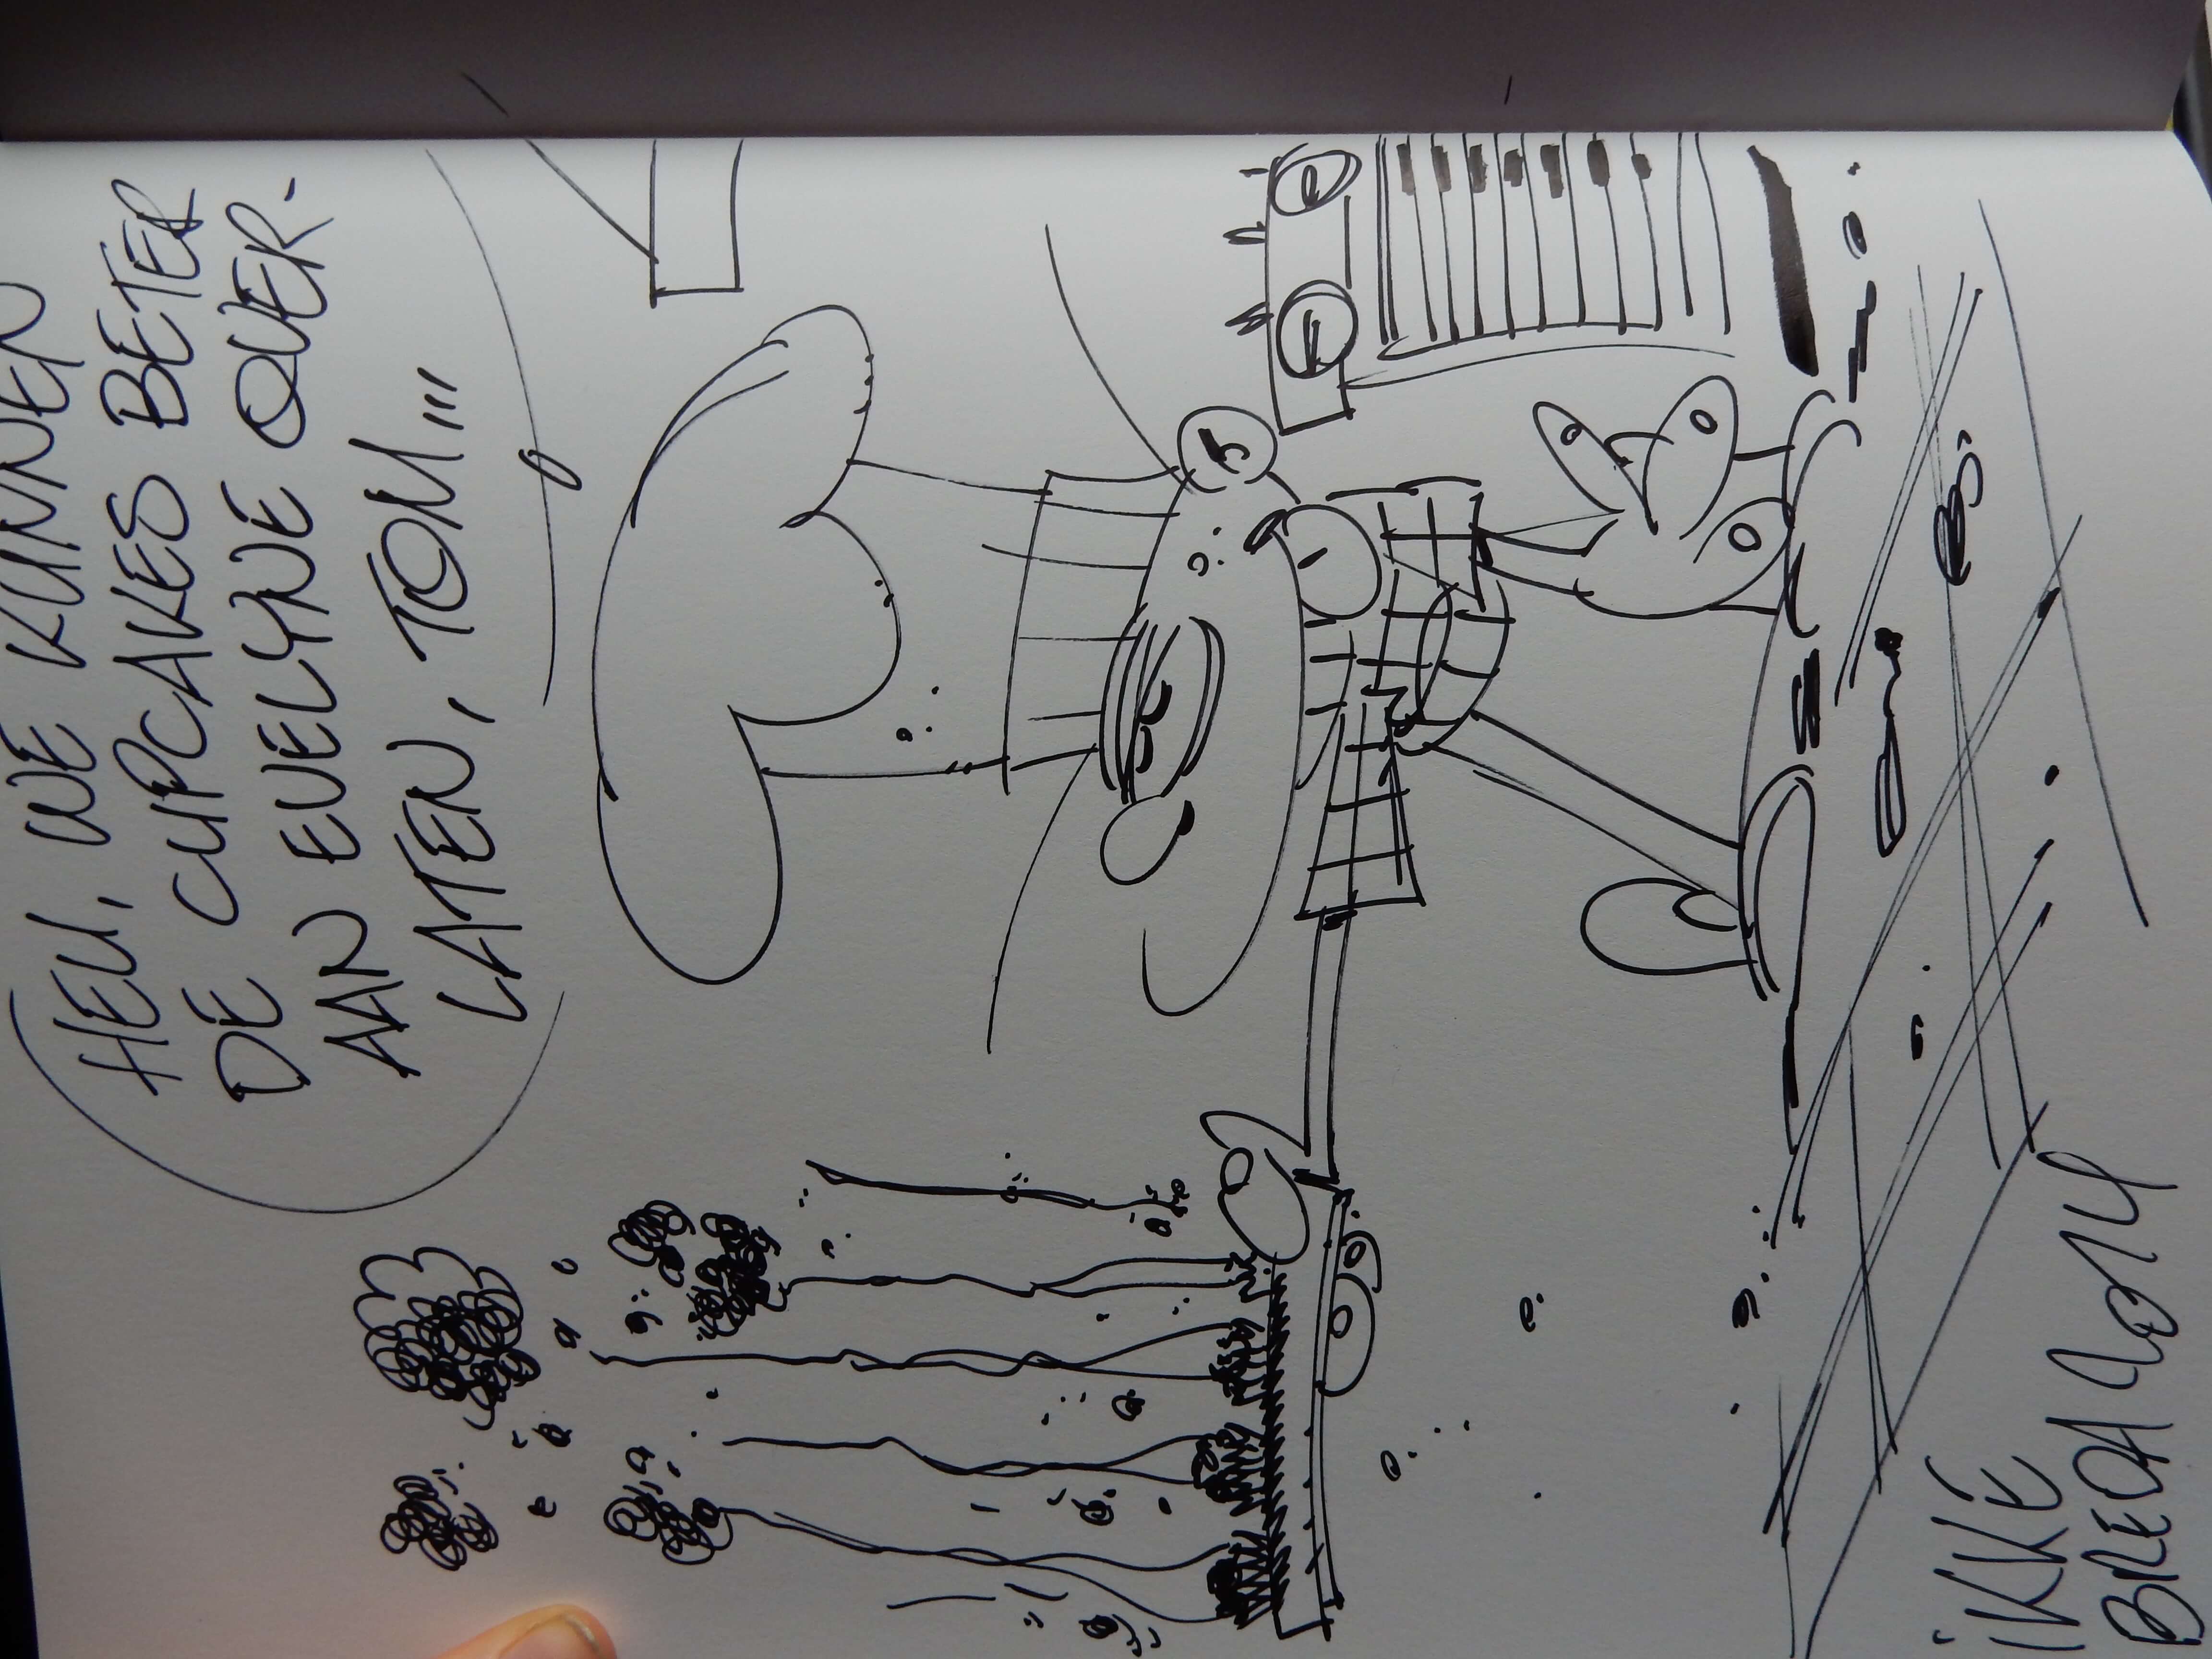 HEU, WE KUNNEN
DE CUPCAKES BETER
AAN EVELYNE OVER-
LATEN, TOM...
iKKE
BREDA 2014